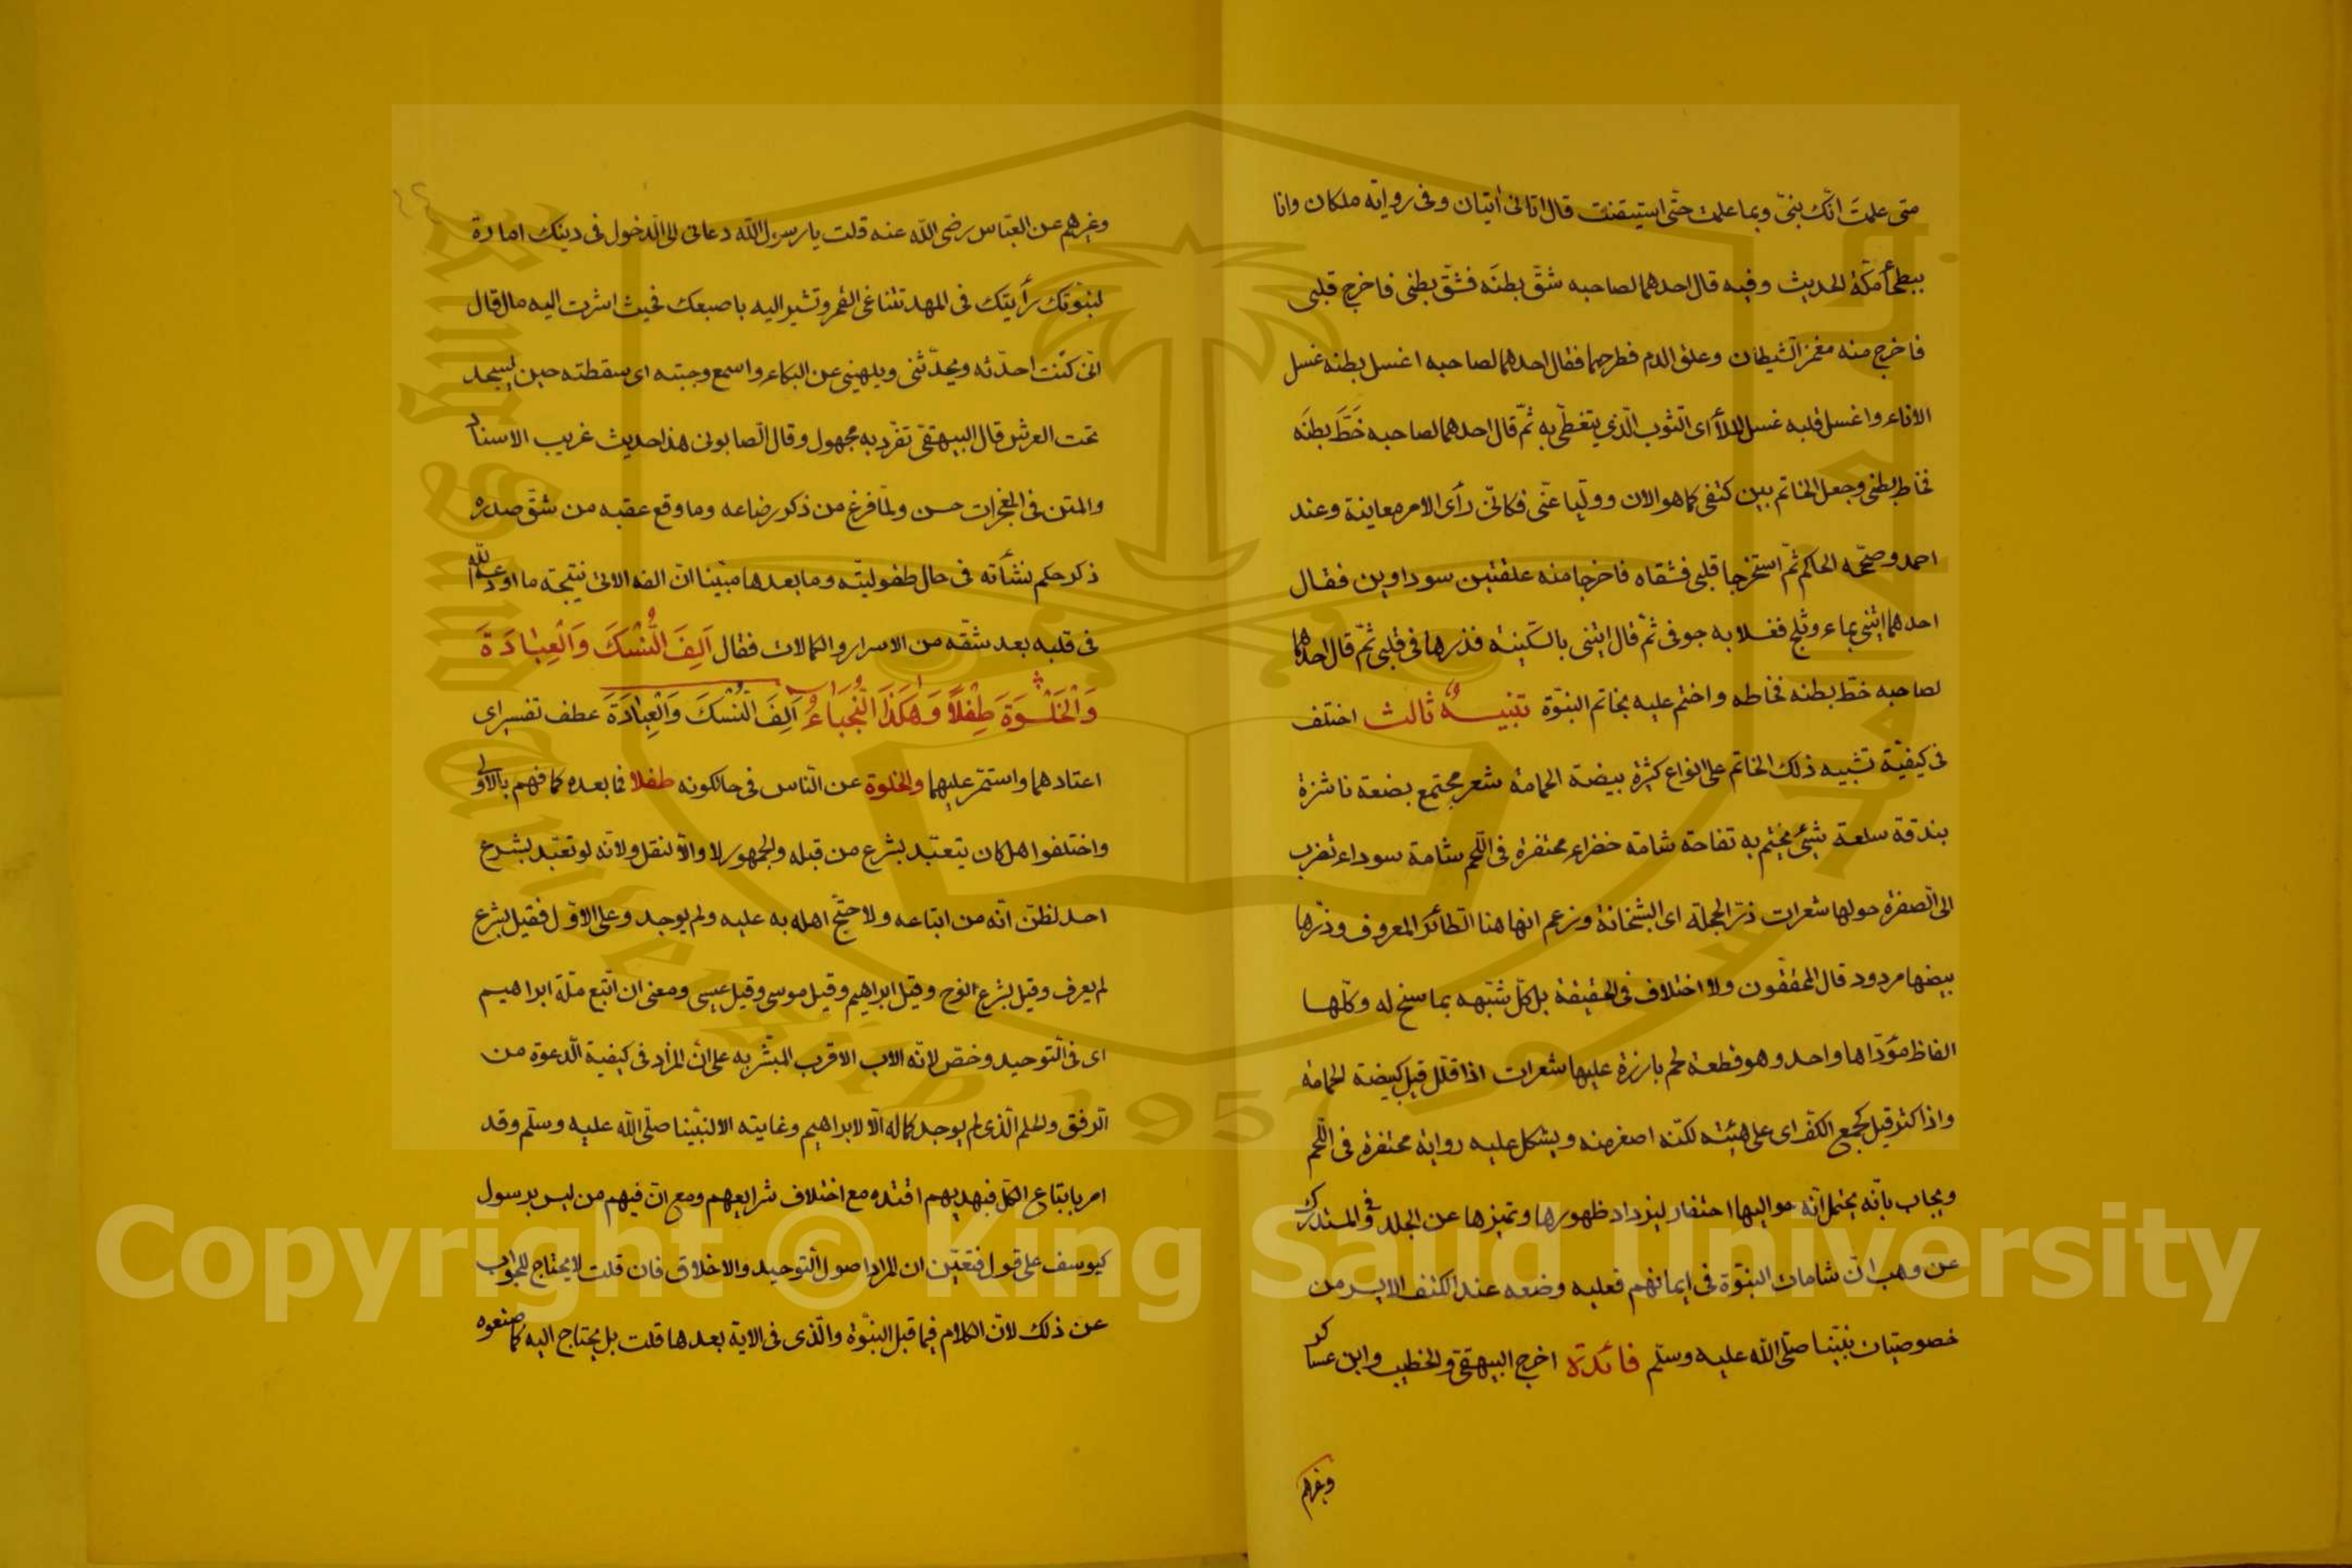 متى علمتَ انّك بنىّ وبما علمت حتّى استيقنت قال اتانى أتيان وفى رواية ملكان وانا
ببطحأ مكّة الحديث وفيه قال احدهما لصاحبه شقّ بطنَه فشقّ بطنى فاخرج قلبى
فاخرج منه مغمز الشيطان وعلق الدم فطرحهما فقال احدهما لصاحبه اغسل بطنه غسل
الاناء واغسل قلبه غسل الملأ اى الثوب الّذى يتغطّى به ثمّ قال احدهما لصاحبه خَطَّ بطنَه
فخاط بطنى وجعل الخاتم بين كتفى كما هو الان وولّيا عنّى فكانّى رأى الامر معاينة وعند
احمد وصحّحه الحاكم ثمّ استخرجا قلبى فشقاه فاخرجا منه علقتين سوداوين فقال
احدهما ايتنى بماء وثلج فغسلا به جوفى ثمّ قال ايتنى بالسّكينة فذرها فى قلبى ثمّ قال احدهما
لصاحبه خطّ بطنه فخاطه واختم عليه بخاتم النبوّة تنبيهٌ ثالث اختلف
فى كيفيّة تشبيه ذلك الخاتم على انواع كثيرة بيضة الحمامة شعر مجتمع بضعة ناشزة
بندقة سلعة شيئ يختم به تفاحة شامة خضراء محتفرة فى اللّحم شامة سوداء تضرب
الى الصفرة حولها شعرات زرّ الحجلة اى البشخانة وزعم انها هنا الطائر المعروف وزرّها
بيضها مردود قال المحقّقون ولا اختلاف فى الحقيقة بل كلّ شبّهه بما سنح له وكلّها
الفاظ مؤدّاها واحد وهو قطعة لحم بارزة عليها شعرات اذا قلّل قيل كبيضة الحمامة
واذا كثر قيل كجمع الكفّ اى على هيئته لكنّه اصغر منه ويشكل عليه رواية محتفرة فى اللّحم
ويجاب بانّه يحتمل انّه حواليها احتفار ليزداد ظهورها وتميزها عن الجلد وفى المستدرك
عن وهب انّ شامات النبوّة فى ايمانهم فعليه وضعه عند الكتف الايسر من
خصوصيّات نبيّنا صلّى الله عليه وسلّم فائدة اخرج البيهقىّ والخطيب وابن عساكر
وغيرهم
وغيرهم عن العبّاس رضى الله عنه قلت يا رسول الله دعانى الى الدّخول فى دينك امارة
لنبوّتك رأيتك فى المهد تناغى القمر وتشير اليه باصبعك فحيث اشرت اليه مال قال
انّى كنت احدّثه ويحدّثنى ويلهينى عن البكاء واسمع وجبته اى سقطته حين يسجد
تحت العرش قال البيهقىّ تفرّد به مجهول وقال الصابونى هذا حديث غريب الاسناد
والمتن فى المعجزات حسن ولمّا فرغ من ذكر رضاعه وما وقع عقبه من شقّ صدره
ذكر حكم نشأته فى حال طفوليّته وما بعدها مبيّنا انّ الفه الاتى نتيجة ما اودعه الله
فى قلبه بعد شقّه من الاسرار والكمالات فقال اَلِفَ النُّسْكَ وَالْعِبَادَةَ
وَالْخَلْوَةَ طِفْلاً وَهَكَذَا النُّجَبَاءُ اَلِفَ النُّسْكَ وَالْعِبَادَةَ عطف تفسير اى
اعتادهما واستمرّ عليهما والخلوة عن النّاس فى حال كونه طفلا فما بعده كما فهم بالاولى
واختلفوا هل كان يتعبّد بشرع من قبله والجمهور لا والّا لنقل ولانّه لو تعبّد بشرع
احد لظنّ انّه من اتباعه ولاحتجّ اهله به عليه ولم يوجد وعلى الاوّل فقيل بشرع
لم يعرف وقيل بشرع نوح وقيل ابراهيم وقيل موسى وقيل عيسى ومعنى ان اتّبع ملّة ابراهيم
اى فى التوحيد وخصّ لانّه الاب الاقرب المبشّر به على انّ المراد فى كيفية الدّعوة من
الرفق والحلم الّذى لم يوجد كماله الّا لابراهيم وغايته الا لنبيّنا صلّى الله عليه وسلّم وقد
امر باتباع الكلّ فبهديهم اقتده مع اختلاف شرايعهم ومع انّ فيهم من ليس برسول
كيوسف على قول فتعيّن ان المراد اصول التوحيد والاخلاق فان قلت لا يحتاج للجواب
عن ذلك لانّ الكلام فيما قبل النبوّة والّذى فى الاية بعدها قلت بل يحتاج اليه كما صنعوه
Copyright © King Saud University
King Saud University
1957